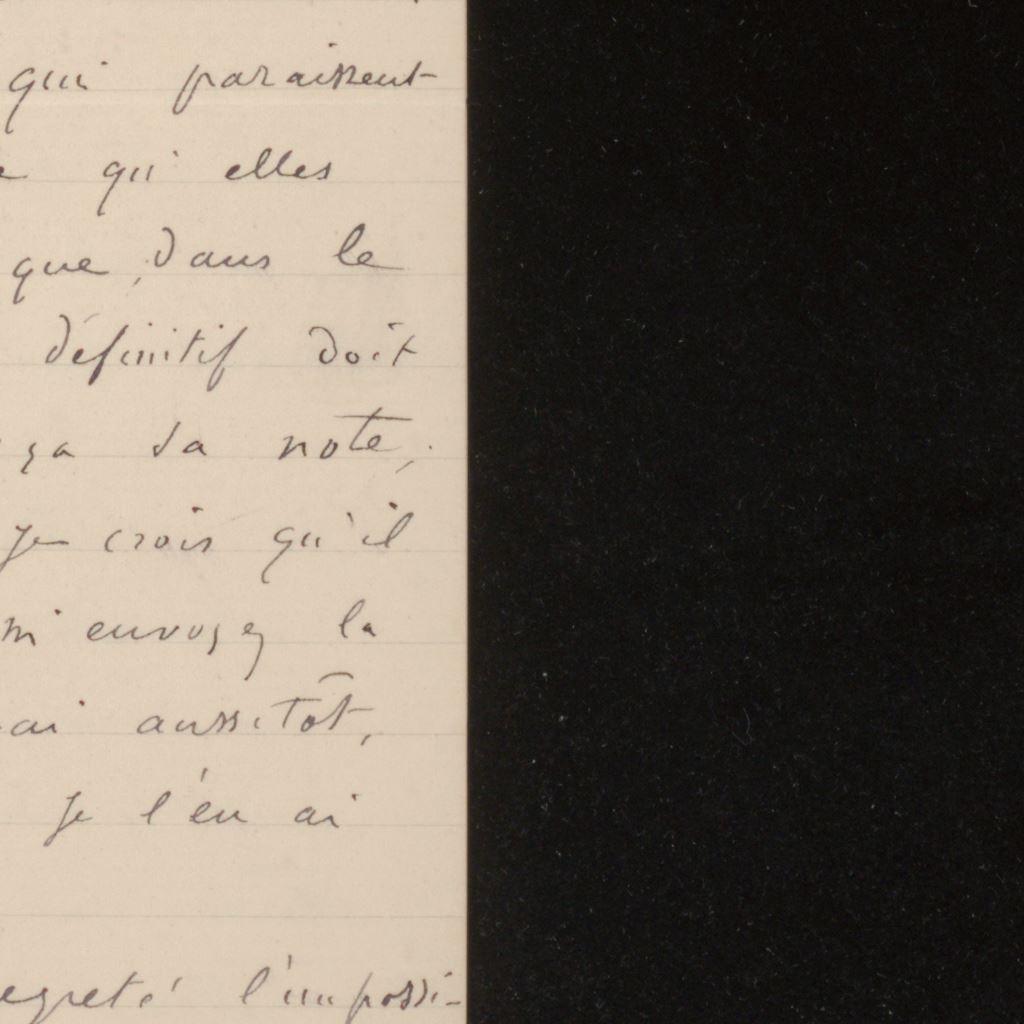 qui paraissent
qu'elles
que, dans le
définitif doit
sa note,
je crois qu'il
envoyez la
aussitôt,
Je l'en ai
regretté l'impossi-